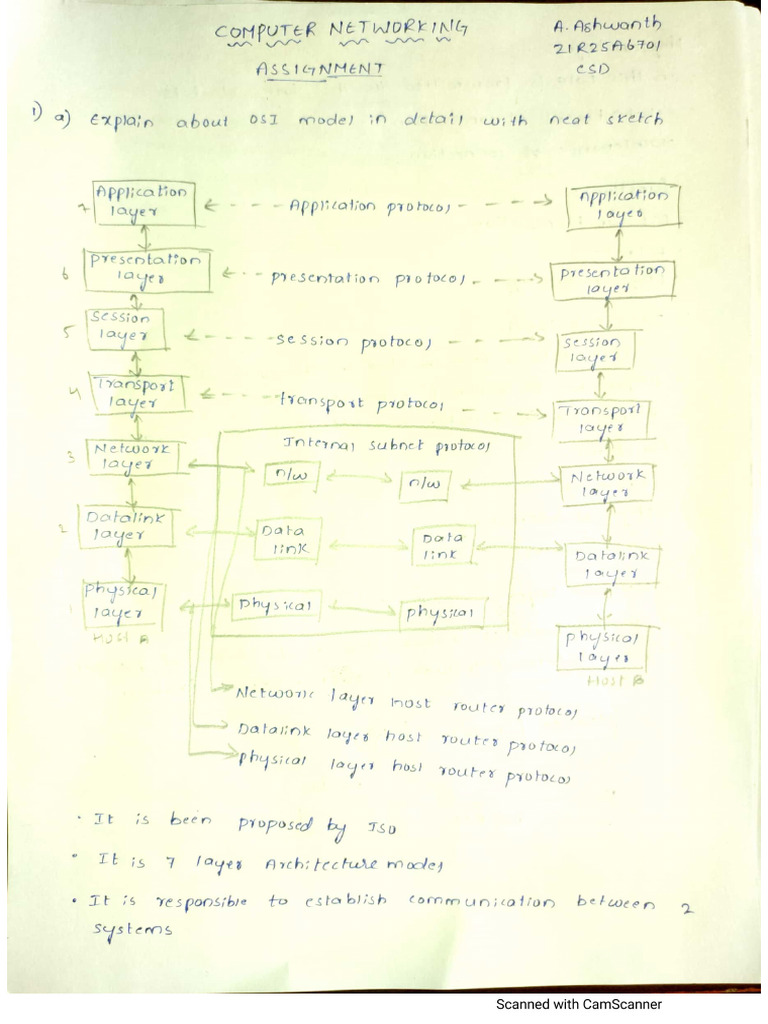 COMPUTER NETWORKING
A. Ashwanth
21R25A6701
CSD
ASSIGNMENT
1) a) Explain about OSI model in detail with neat sketch
7 Application layer
Application protocol
Application layer
6 presentation layer
presentation protocol
presentation layer
5 session layer
session protocol
session layer
4 Transport layer
transport protocol
Transport layer
Internal subnet protocol
3 Network layer
n/w
n/w
Network layer
2 Datalink layer
Data link
Data link
Datalink layer
physical layer
physical
physical
physical layer
HOST A
HOST B
Network layer host router protocol
Datalink layer host router protocol
physical layer host router protocol
• It is been proposed by ISO
• It is 7 layer Architecture model
• It is responsible to establish communication between 2
systems
Scanned with CamScanner